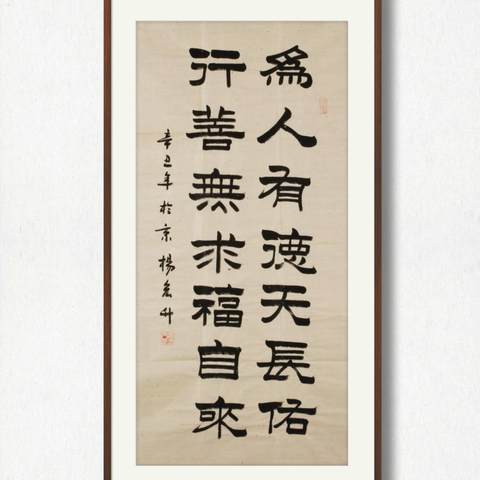 為人有德天長佑
行善無求福自來
辛丑年於京楊名升